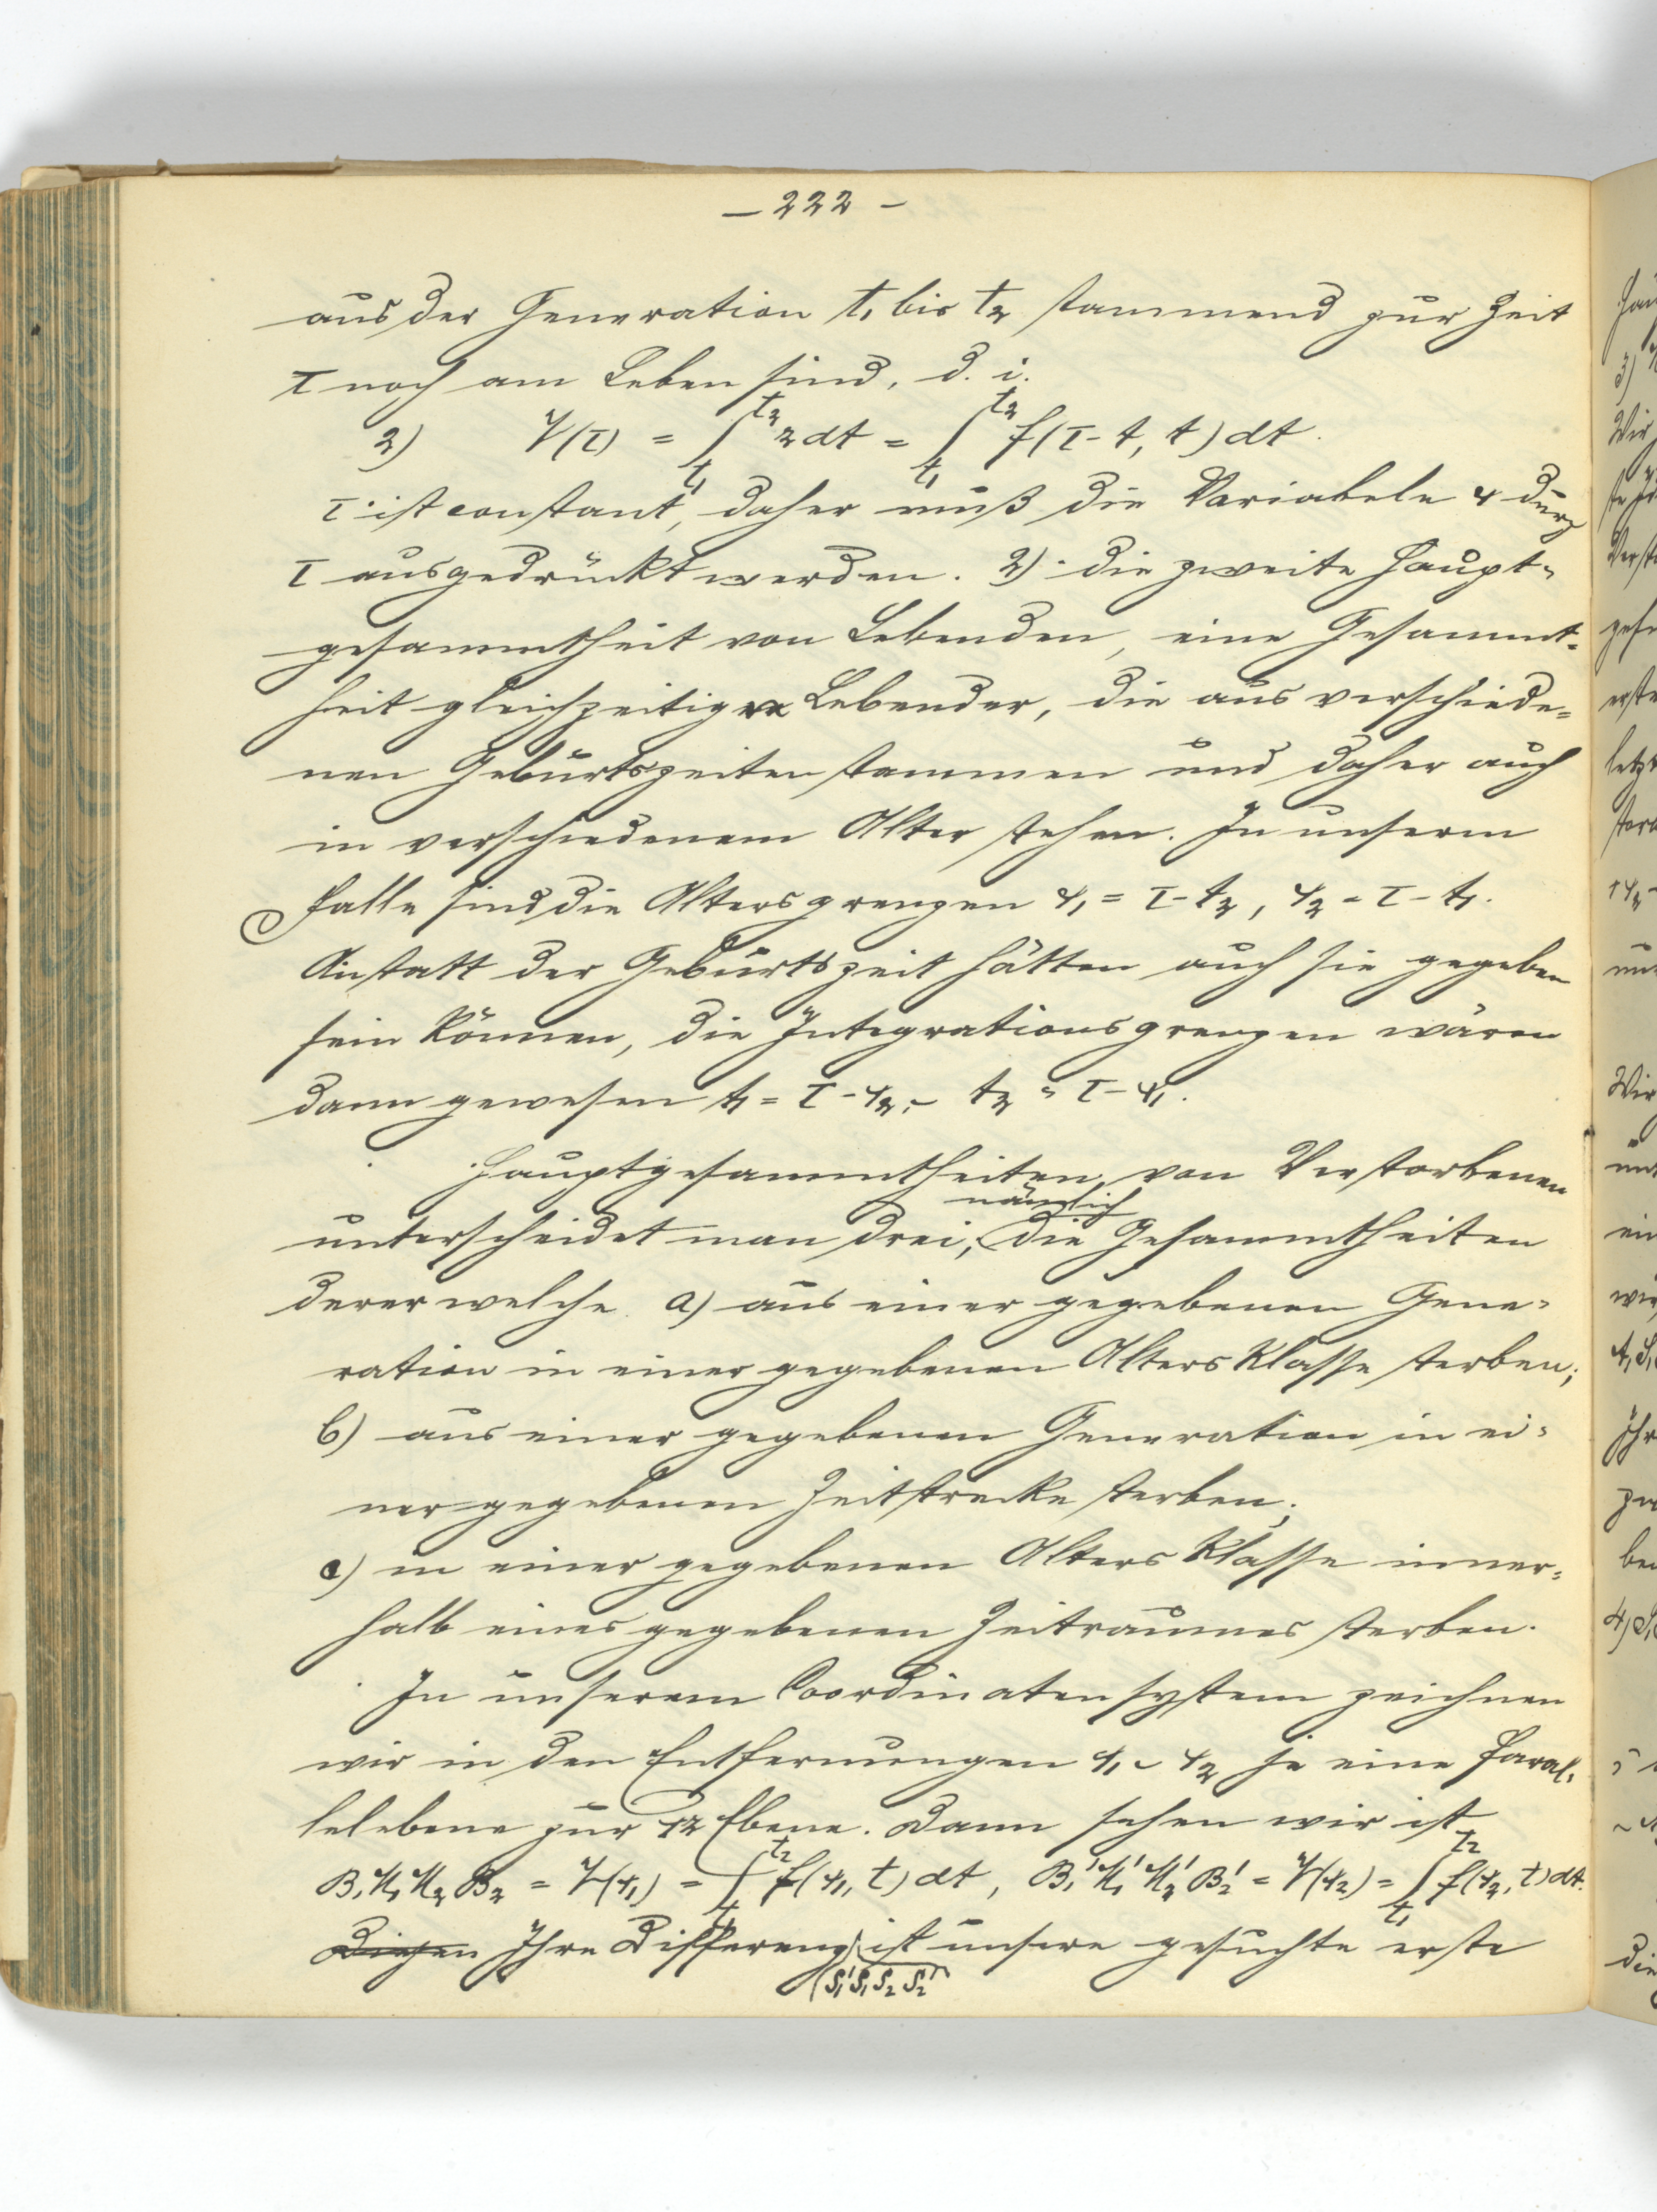 — 222 —
aus der Generation t₁ bis t₂ stammend zur Zeit
τ noch am Leben sind, d. i.
2) V(τ) = ∫_{t₁}^{t₂} z dt = ∫_{t₁}^{t₂} f(τ - t, t) dt.
τ ist constant, daher muß die Variabele x durch
τ ausgedrückt werden. 2) die zweite Haupt-
gesammtheit von Lebenden, eine Gesammt-
heit gleichzeitig Lebender, die aus verschiede-
nen Geburtszeiten stammen und daher auch
in verschiedenem Alter stehen. In unserm
Falle sind die Altersgrenzen x₁ = τ - t₂, x₂ = τ - t₁.
Anstatt der Geburtszeit hätten auch sie gegeben
sein können, die Integrationsgrenzen wären
dann gewesen t₁ = τ - x₂, ~ t₂ = τ - x₁.
Hauptgesammtheiten von Verstorbenen
unterscheidet man drei, nämlich die Gesammtheiten
derer welche a) aus einer gegebenen Gene-
ration in einer gegebenen Altersklasse sterben;
b) aus einer gegebenen Generation in ei-
ner gegebenen Zeitstrecke sterben;
c) in einer gegebenen Altersklasse inner-
halb eines gegebenen Zeitraumes sterben.
In unserem Coordinatensystem zeichnen
wir in den Entfernungen x₁ ~ x₂ je eine Paral-
lelebene zur tz Ebene. Dann sehen wir ist
B₁N₁N₂B₂ = V(x₁) = ∫_{t₁}^{t₂} f(x₁, t) dt, B₁'N₁'N₂'B₂' = V(x₂) = ∫_{t₁}^{t₂} f(x₂, t) dt.
Diesen Ihre Differenz (S₁'S₁S₂S₂') ist unsere gesuchte erste